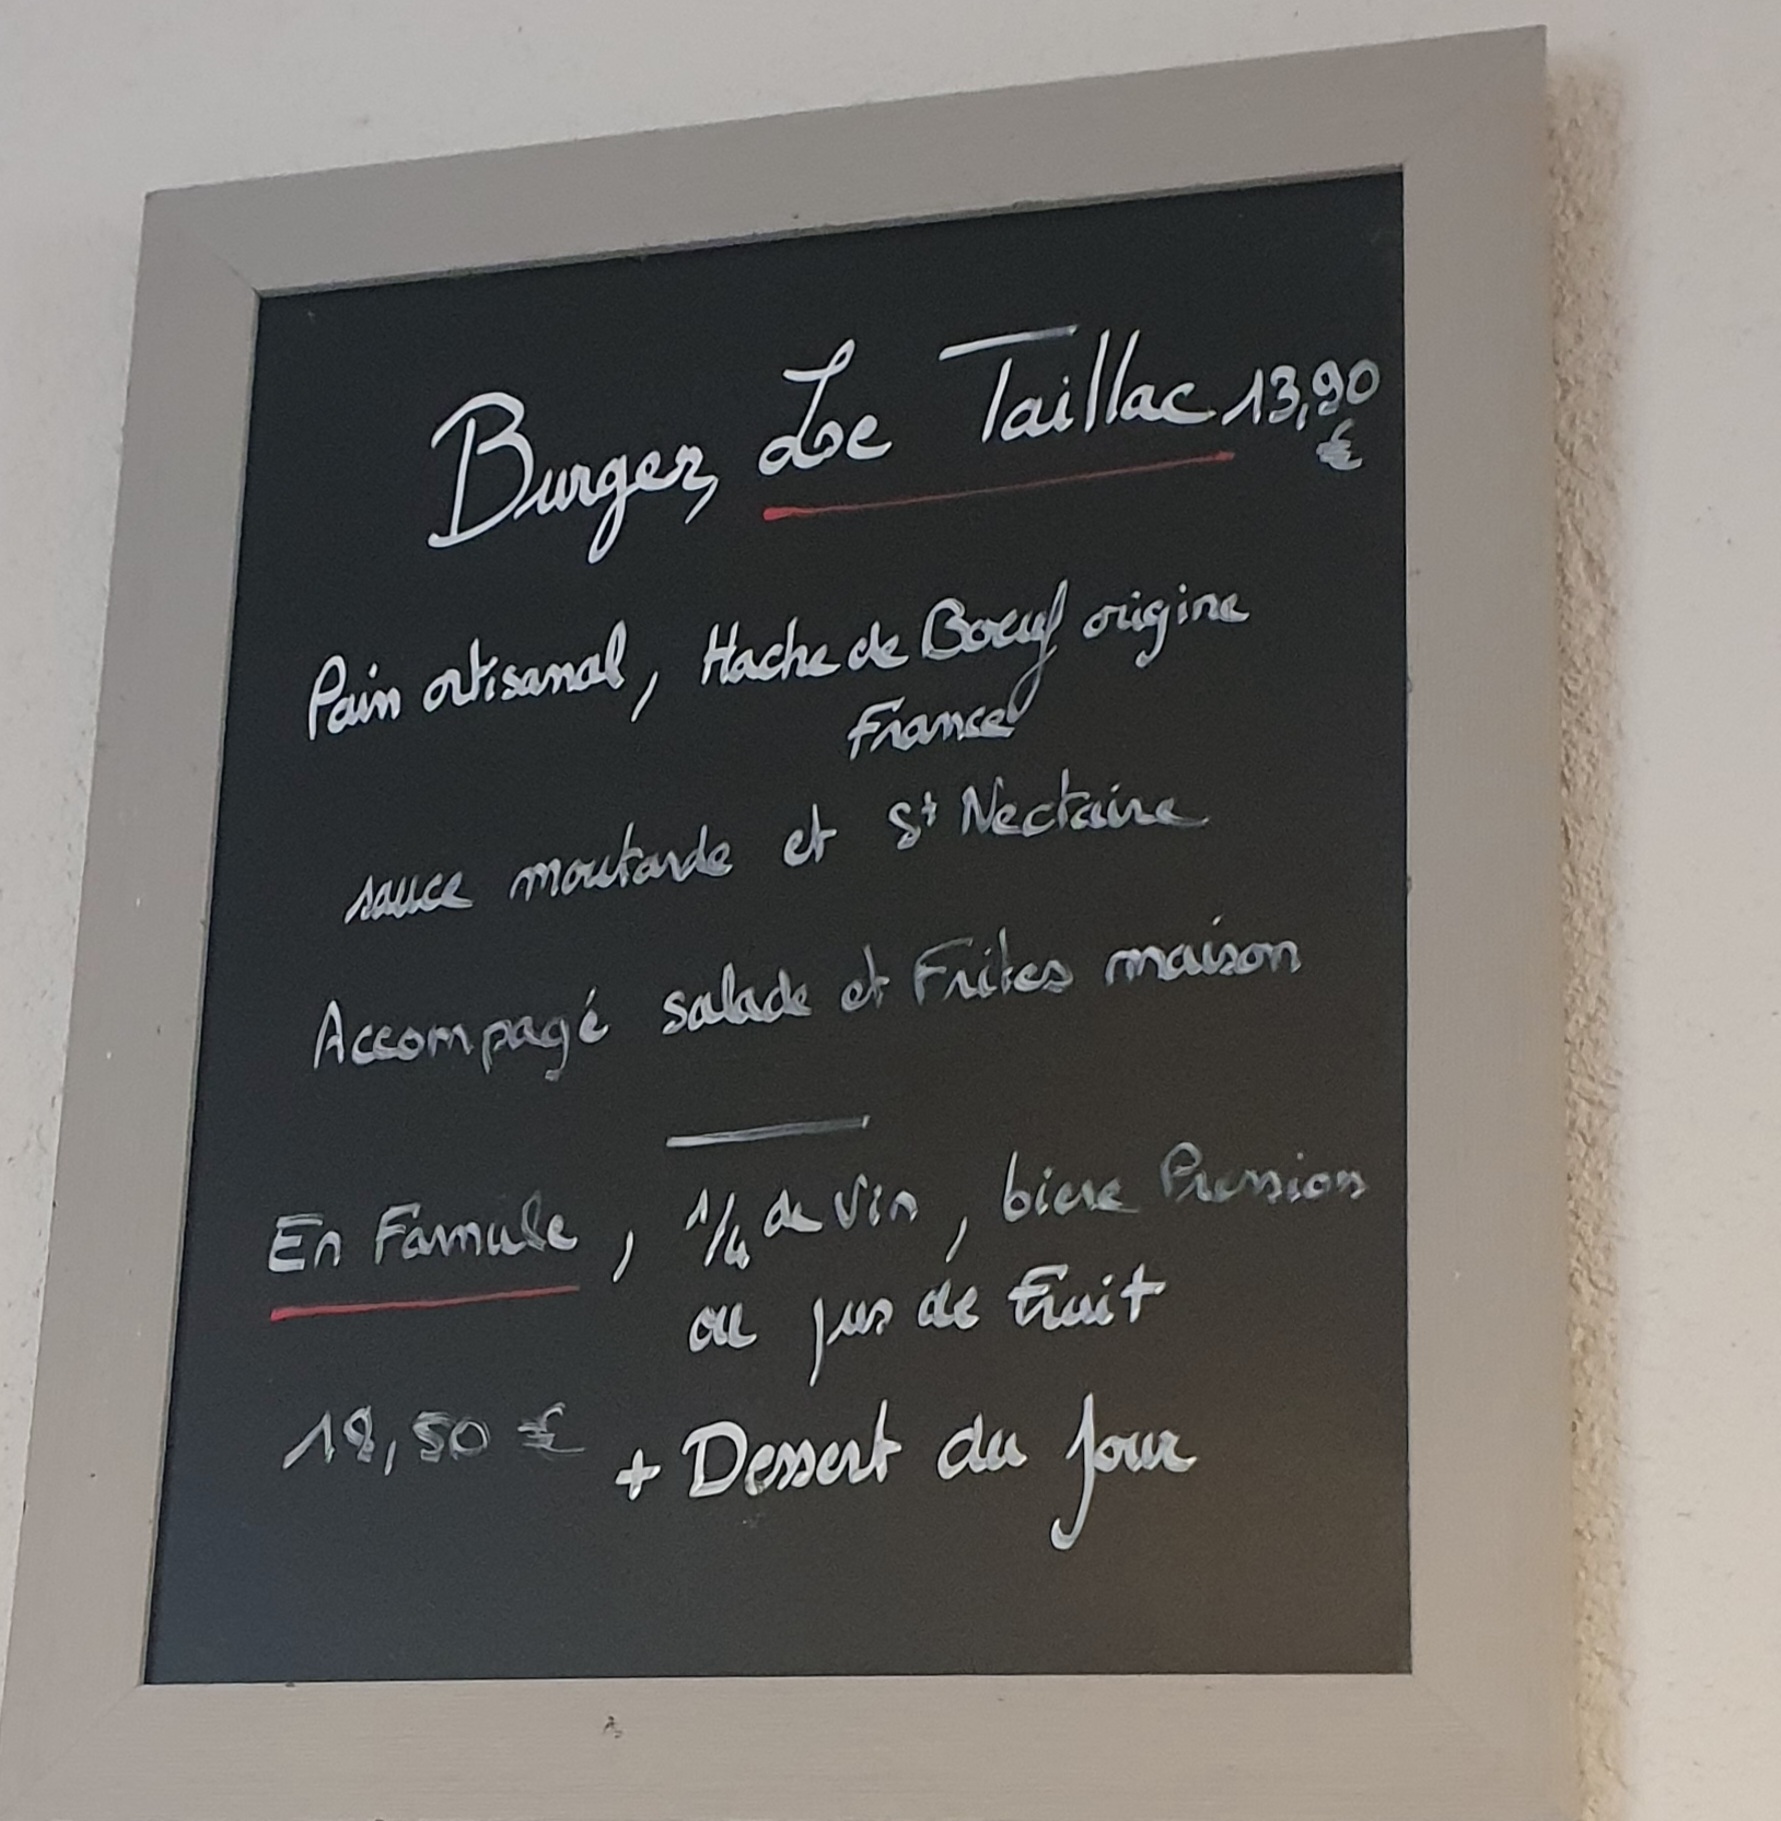 Burger, Le Taillac 13,90
€
Pain artisanal, Hache de Boeuf origine
France
sauce moutarde et St Nectaire
Accompagé salade et Frites maison
En Famule, 1/4 de Vin, biere Pression
ou jus de Fruit
18,50 € + Dessert du Jour